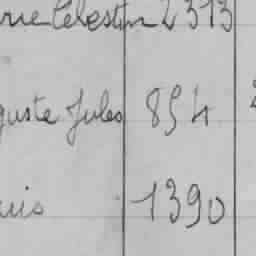 rre Célestin 2313
guste Jules 854
uis 1390